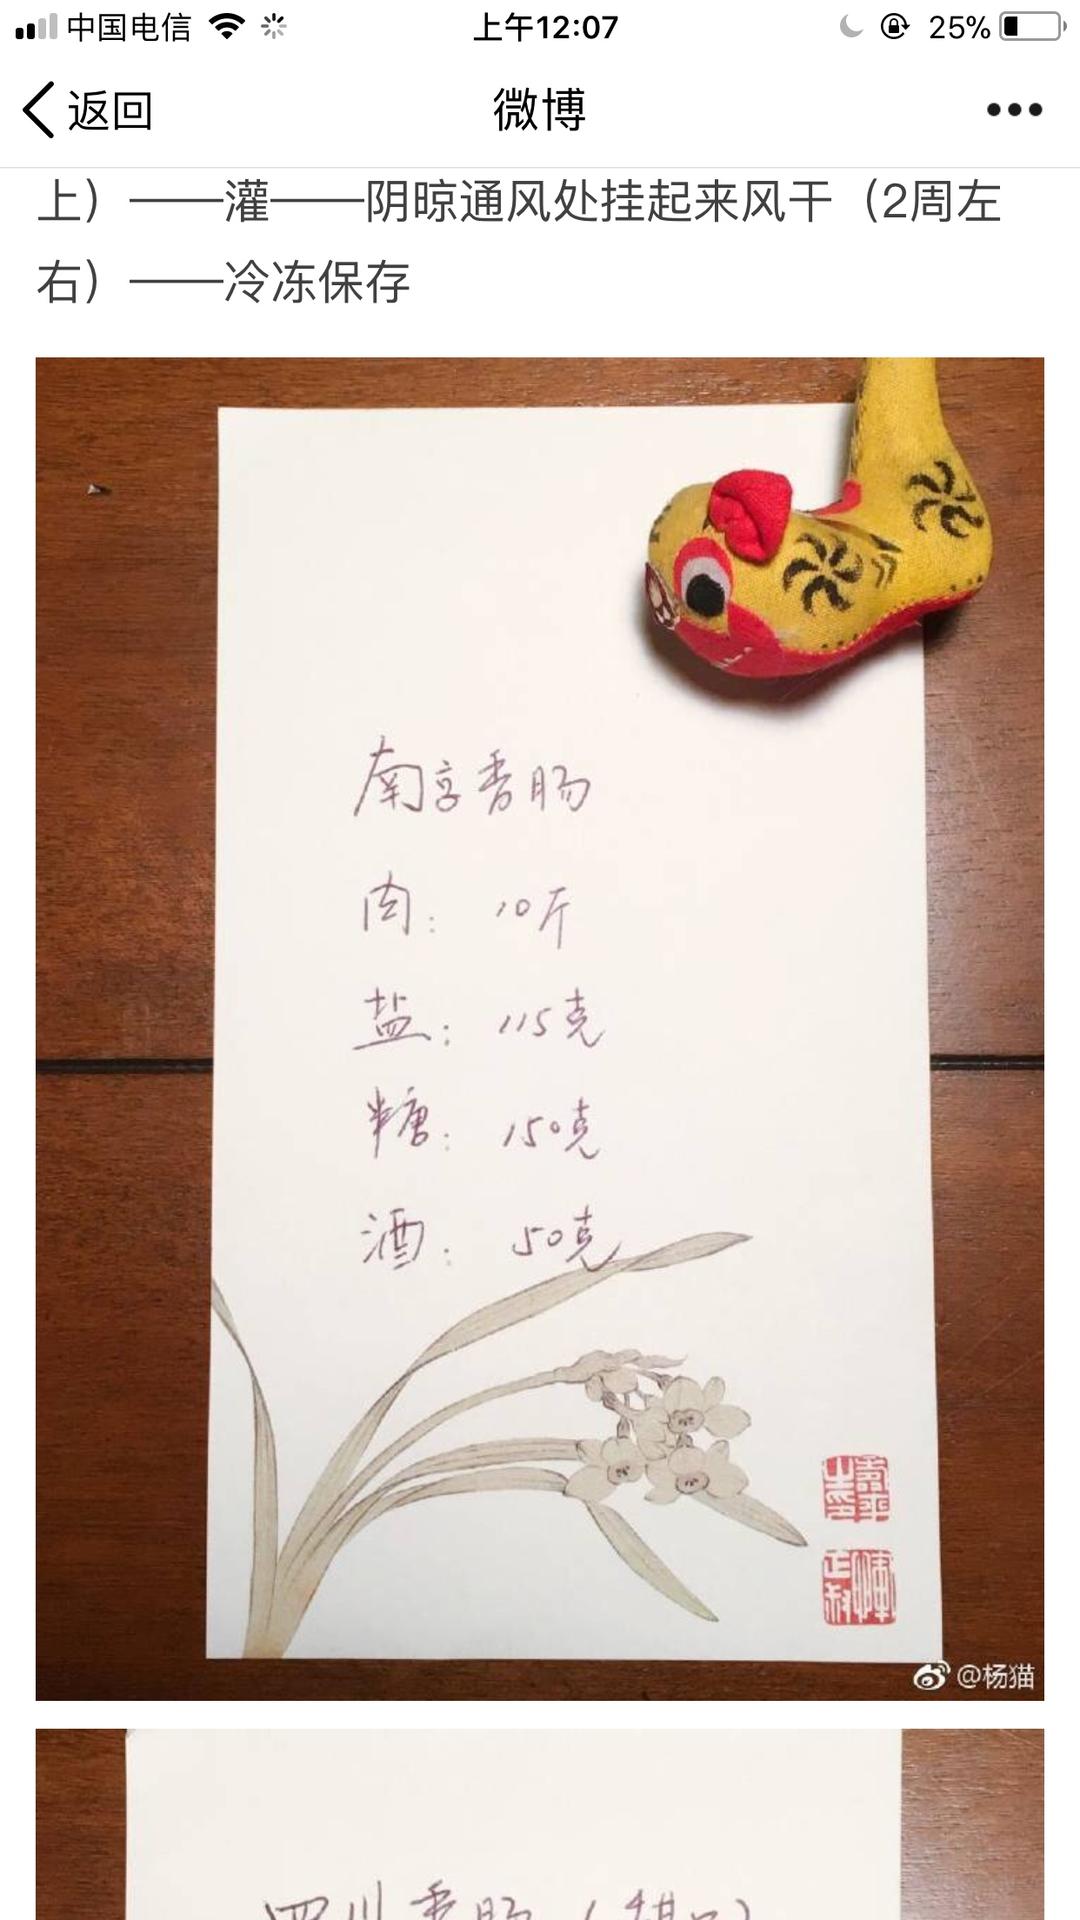 中国电信
上午12:07
25%
返回
微博
上）——灌——阴晾通风处挂起来风干（2周左
右）——冷冻保存
南京香肠
肉：10斤
盐：115克
糖：150克
酒：50克
@杨猫
四川香肠